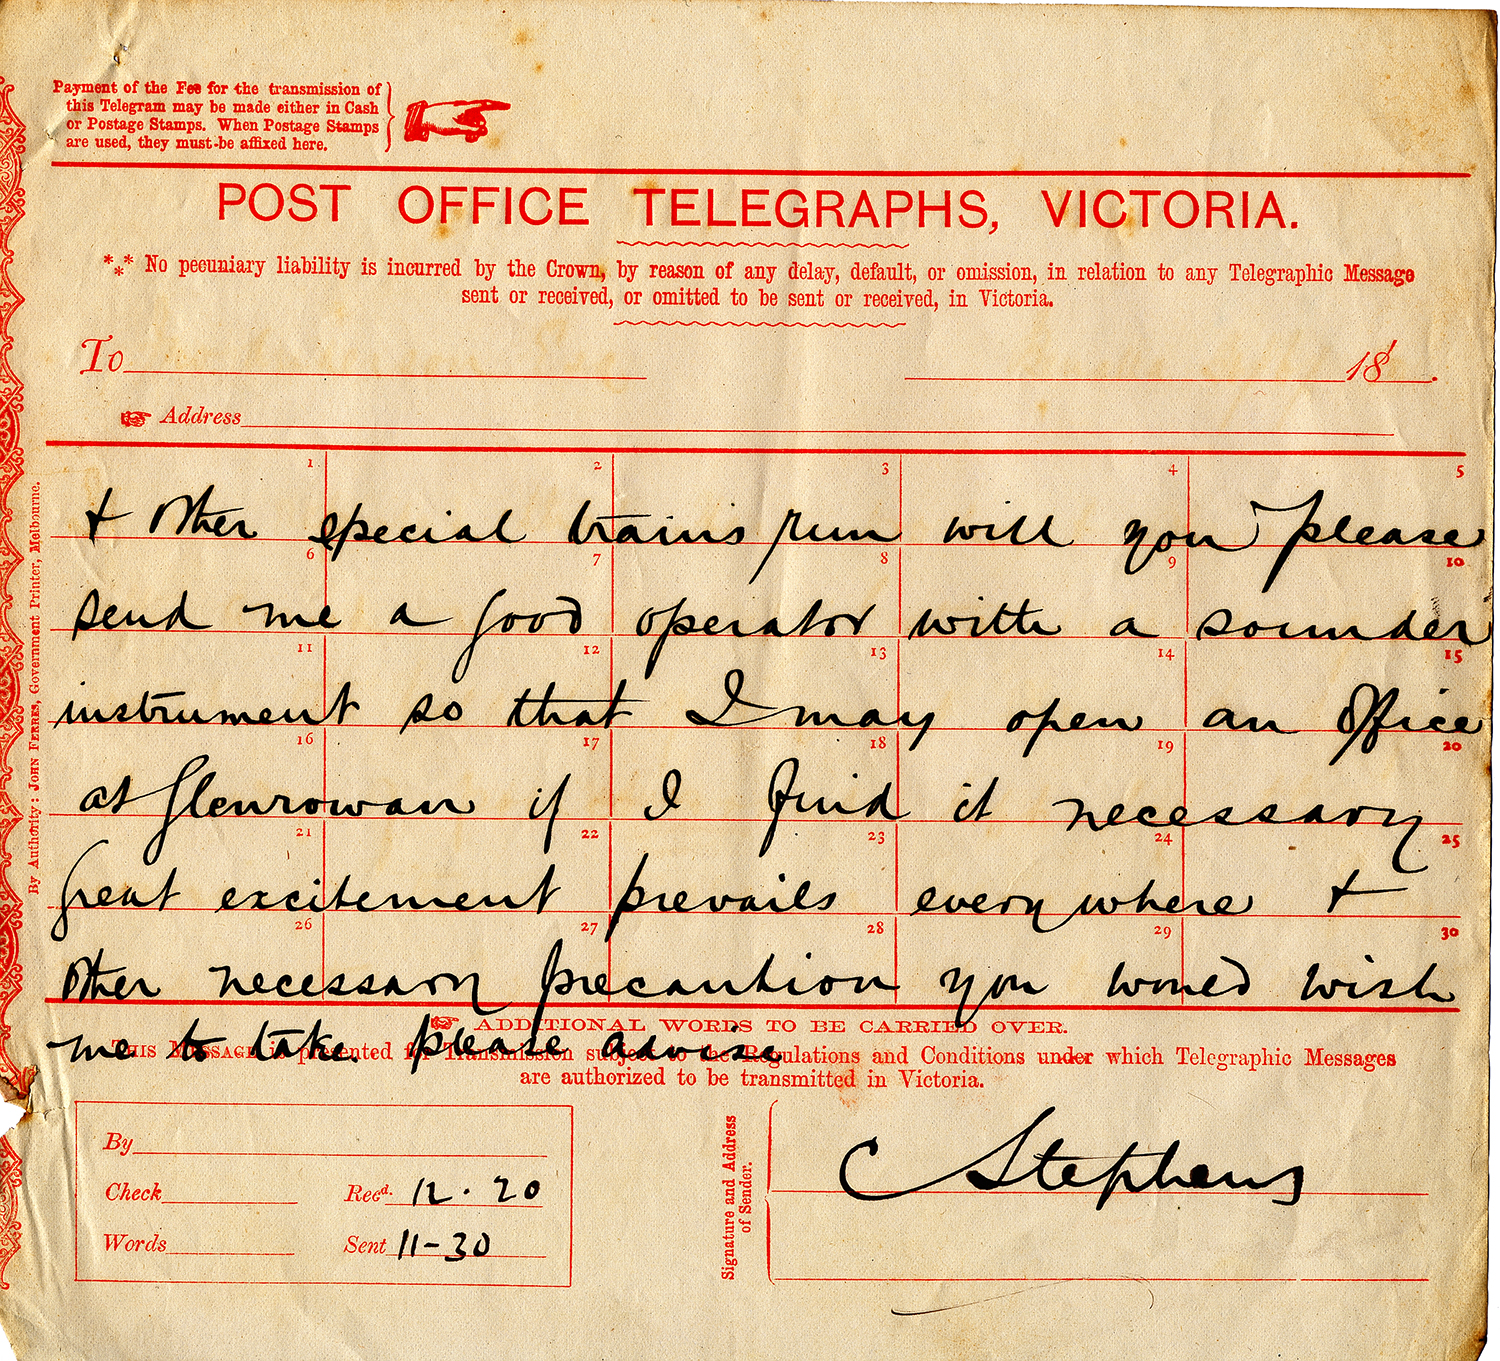 Payment of the Fee for the transmission of
this Telegram may be made either in Cash
or Postage Stamps. When Postage Stamps
are used, they must be affixed here.
POST OFFICE TELEGRAPHS, VICTORIA.
*** No pecuniary liability is incurred by the Crown, by reason of any delay, default, or omission, in relation to any Telegraphic Message
sent or received, or omitted to be sent or received, in Victoria.
To 18 .
Address
1 2 3 4 5
& other special trains run will you please
6 7 8 9 10
send me a good operator with a sounder
11 12 13 14 15
instrument so that I may open an office
16 17 18 19 20
at Glenrowan if I find it necessary
21 22 23 24 25
Great excitement prevails everywhere &
26 27 28 29 30
other necessary precaution you would wish
ADDITIONAL WORDS TO BE CARRIED OVER.
me to take please advise
THIS MESSAGE is presented for Transmission subject to the Regulations and Conditions under which Telegraphic Messages
are authorized to be transmitted in Victoria.
By
Check Recd. 12.20
Words Sent 11-30
Signature and Address
of Sender.
C Stephens
By Authority: JOHN FERRES, Government Printer, Melbourne.